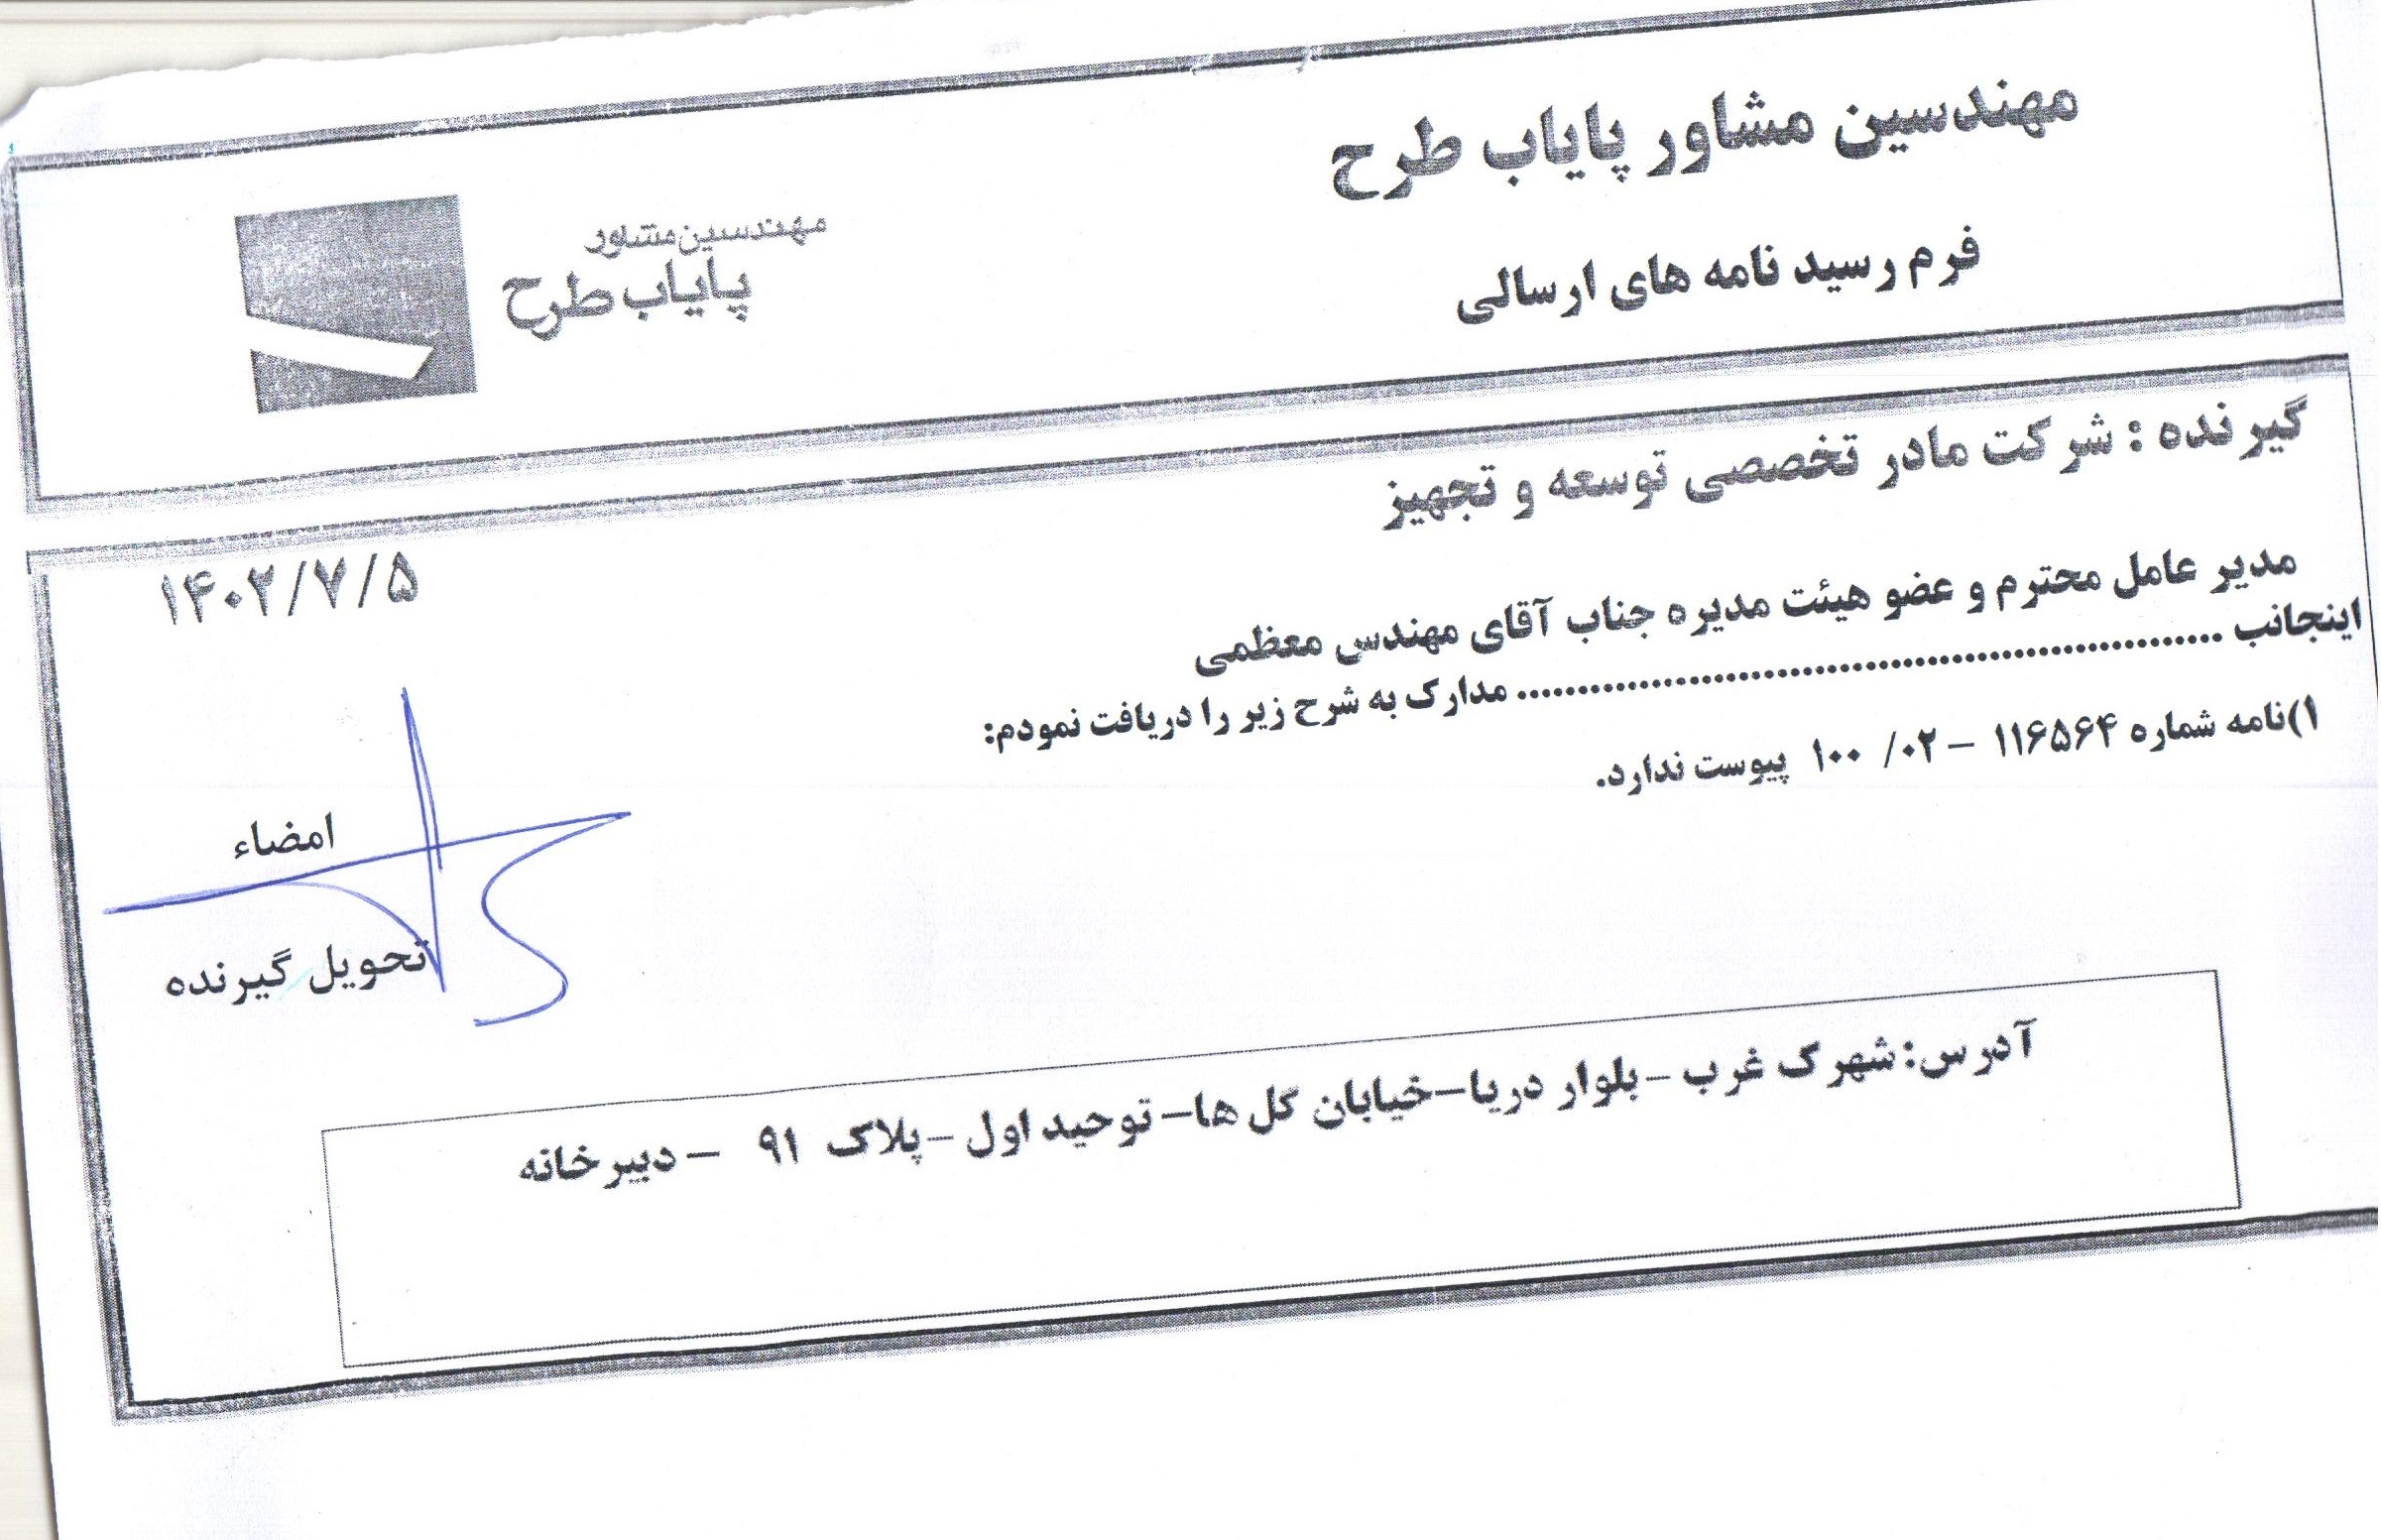 مهندسین مشاور پایاب طرح
فرم رسید نامه های ارسالی
مهندسین مشاور
پایاب طرح
گیرنده : شرکت مادر تخصصی توسعه و تجهیز
۱۴۰۲/۷/۵
مدیر عامل محترم و عضو هیئت مدیره جناب آقای مهندس معظمی
اینجانب ........................................................ مدارک به شرح زیر را دریافت نمودم:
۱)نامه شماره ۱۱۶۵۶۴ – ۰۲/ ۱۰۰ پیوست ندارد.
امضاء
تحویل گیرنده
آدرس: شهرک غرب – بلوار دریا–خیابان گل ها– توحید اول –پلاک ۹۱ – دبیرخانه